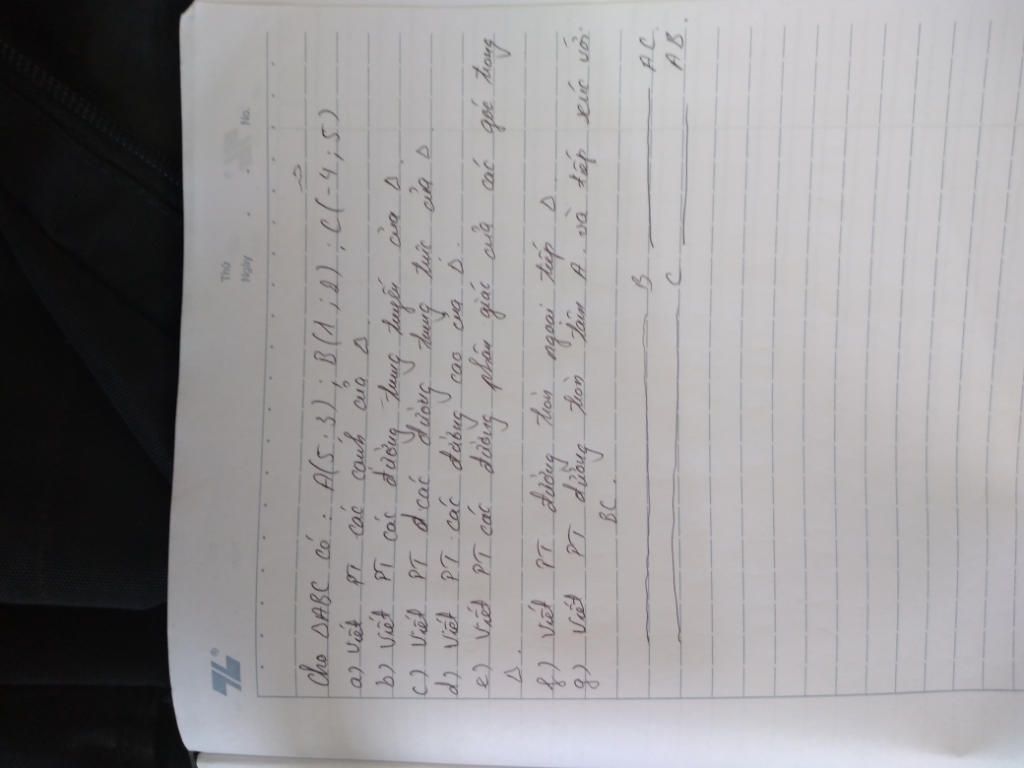 Thứ
Ngày
No.
Cho ΔABC có : A(5;3) ; B(1;2) ; C(-4;5)
a) Viết PT các cạnh của Δ
b) Viết PT các đường trung tuyến của Δ
c) Viết PT các đường trung trực của Δ
d) Viết PT các đường cao của Δ.
e) Viết PT các đường phân giác của các góc trong
Δ.
f) Viết PT đường tròn ngoại tiếp Δ
g) Viết PT đường tròn tâm A và tiếp xúc với
BC.
B AC.
C AB.